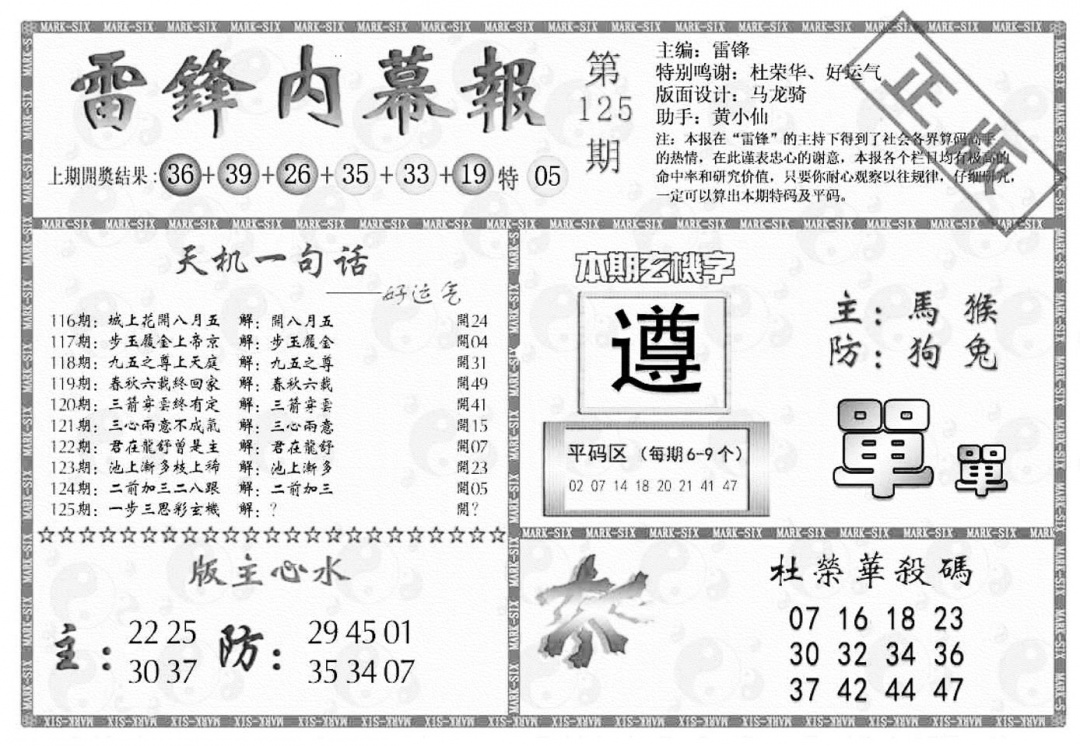 雷鋒内幕報
第125期
上期開獎结果：36+39+26+35+33+19特05
主编：雷锋
特别鸣谢：杜荣华、好运气
版面设计：马龙骑
助手：黄小仙
注：本报在“雷锋”的主持下得到了社会各界算码高手
的热情，在此谨表忠心的谢意，本报各个栏目均有极高的
命中率和研究价值，只要你耐心观察以往规律，仔细研究，
一定可以算出本期特码及平码。
正版
天机一句话
——好运气
116期：城上花開八月五 解：開八月五 開24
117期：步玉履金上帝京 解：步玉履金 開04
118期：九五之尊上天庭 解：九五之尊 開31
119期：春秋六载終回家 解：春秋六载 開49
120期：三箭穿雲終有定 解：三箭穿雲 開41
121期：三心兩意不成氣 解：三心兩意 開15
122期：君在龍舒曾是主 解：君在龍舒 開07
123期：池上漸多枝上稀 解：池上漸多 開23
124期：二前加三二八跟 解：二前加三 開05
125期：一步三思彩玄機 解：？ 開？
☆☆☆☆☆☆☆☆☆☆☆☆☆☆☆☆☆☆☆☆☆☆☆
本期玄機字
遵
平码区（每期6-9个）
02 07 14 18 20 21 41 47
主：馬 猴
防：狗 兔
單 單
版主心水
主：22 25
30 37
防：29 45 01
35 34 07
杀
杜榮華殺碼
07 16 18 23
30 32 34 36
37 42 44 47
MARK-SIX